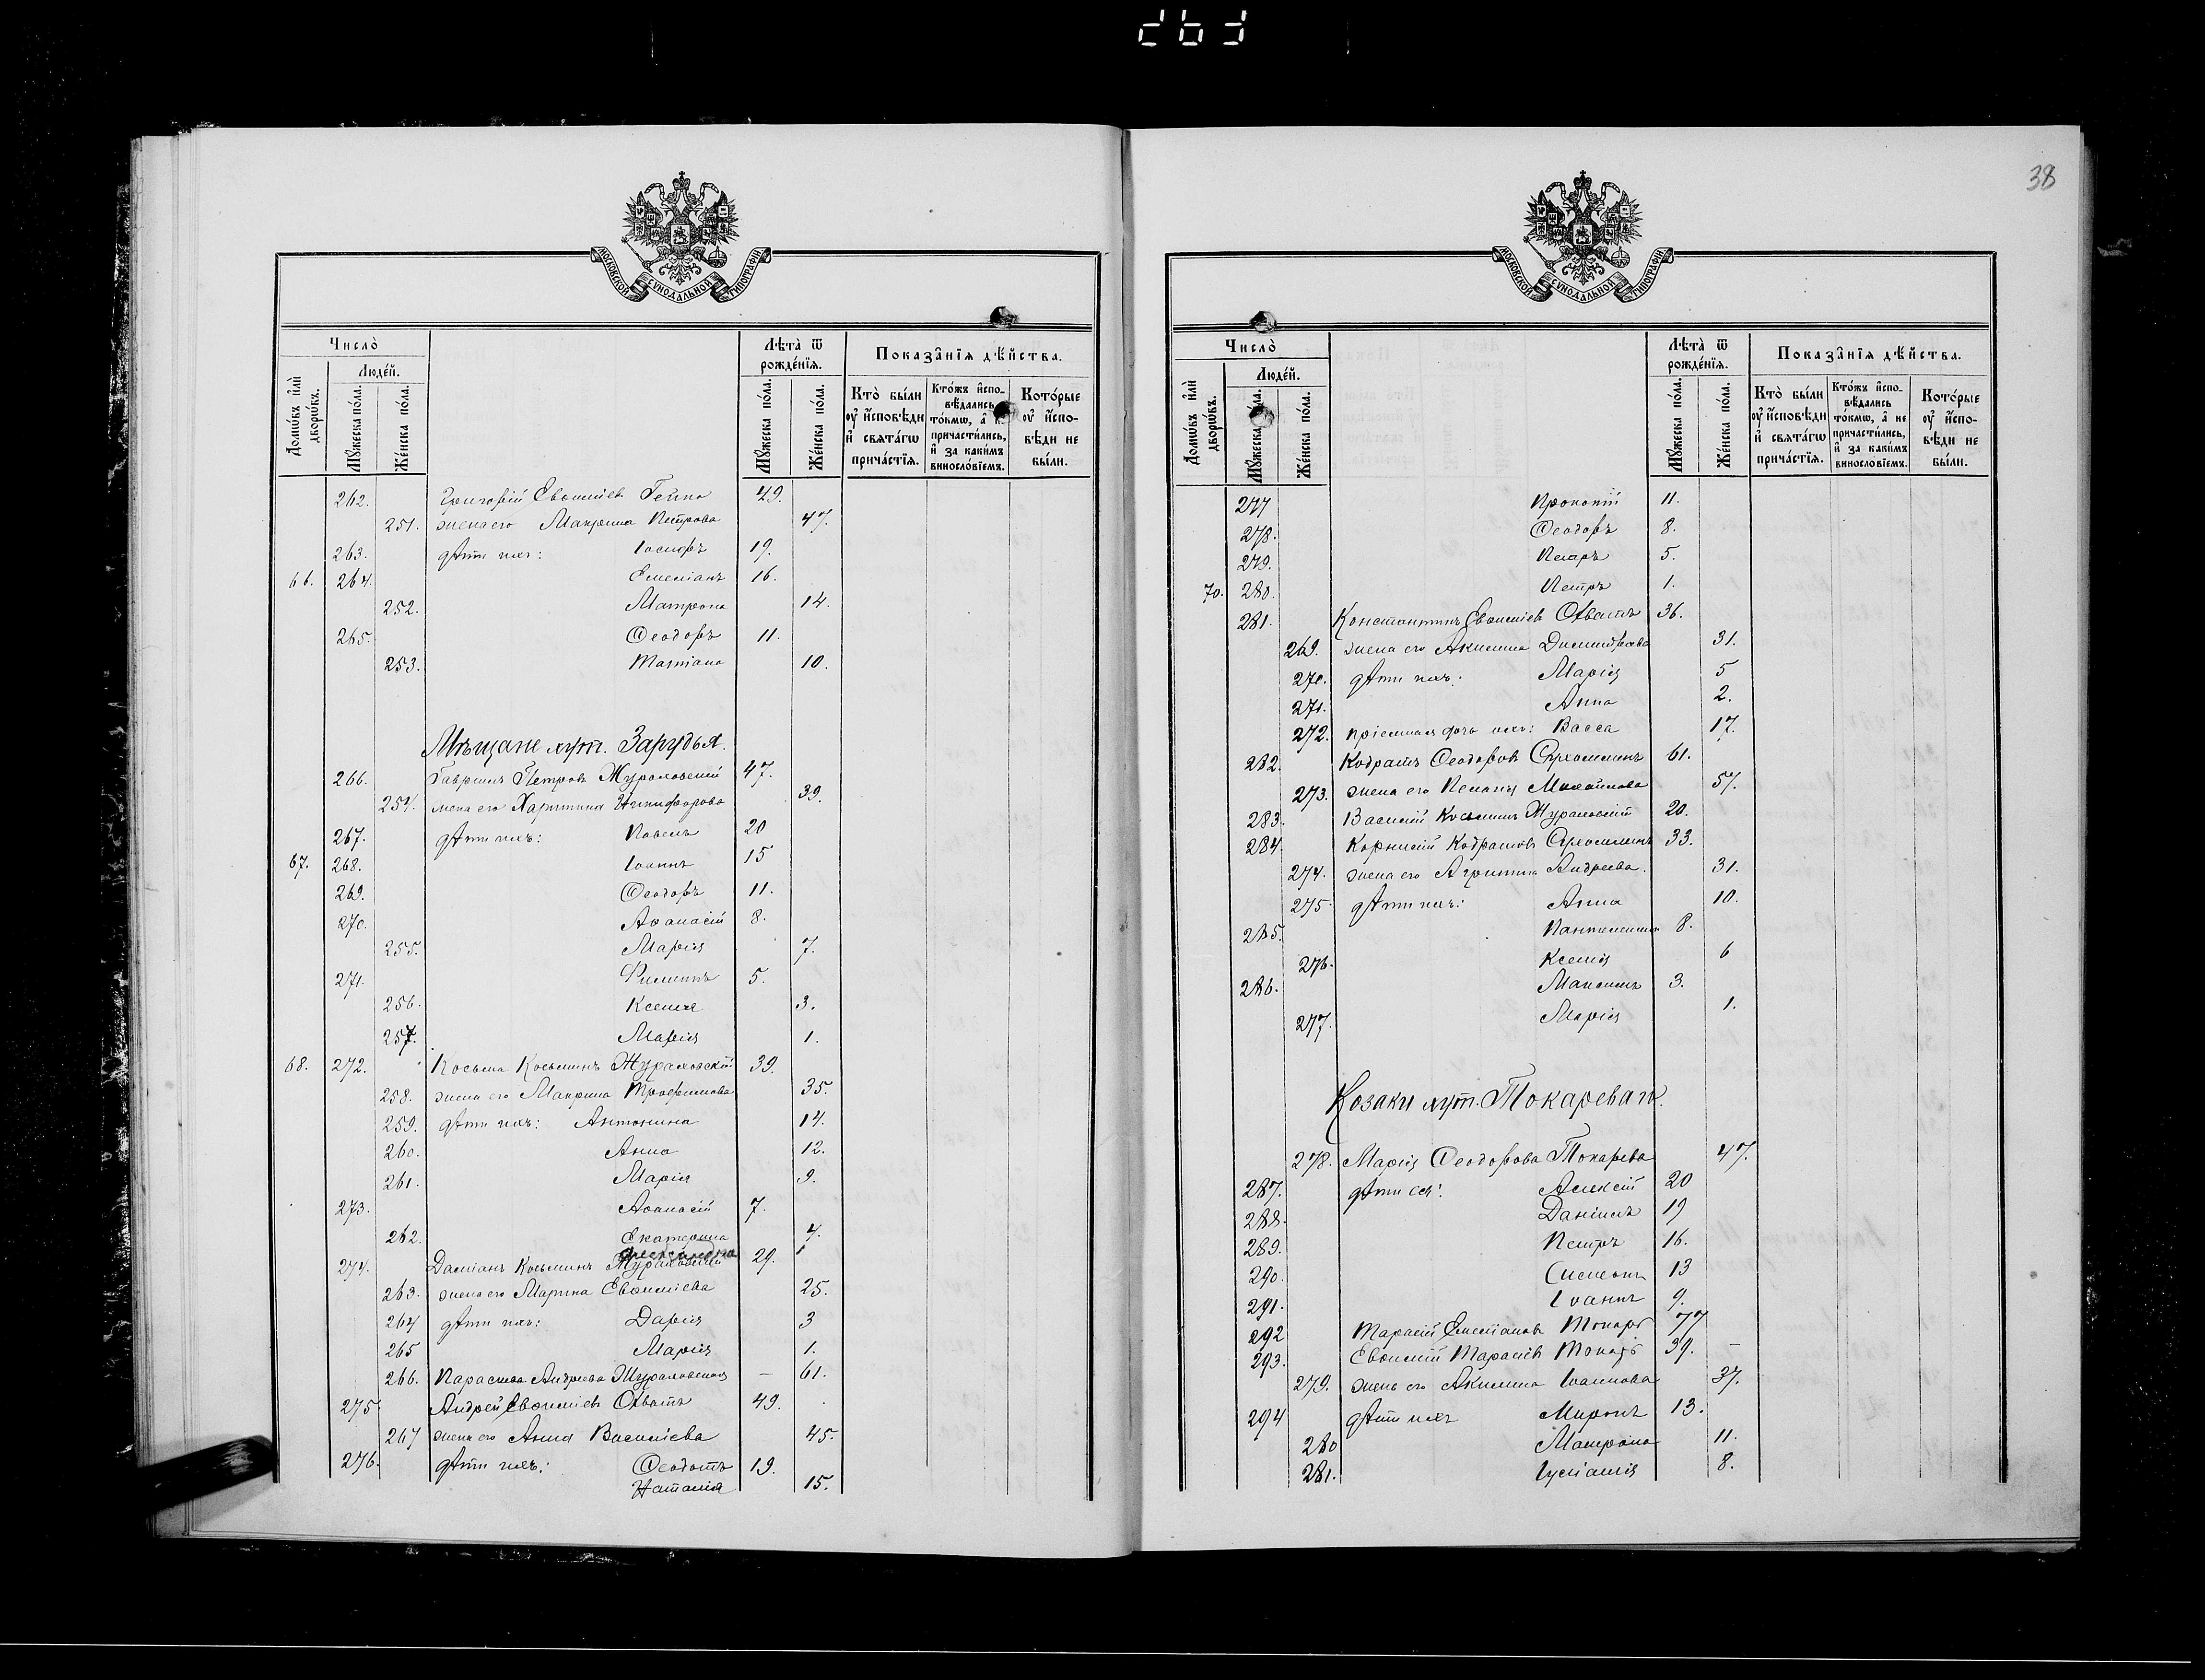 38
МОСКОВСКОЙ СѴНОДАЛЬНОЙ ТИПОГРАФІИ
Число̀
Домѡ́въ и҆лѝ дворѡ́въ.
Люде́й.
Мꙋ́жеска по́ла.
Же́нска по́ла.
Лѣта̀ ѿ рожде́нїѧ.
Мꙋ́жеска по́ла.
Же́нска по́ла.
Показа̑нїѧ дѣ́йства.
Кто̀ бы́ли ᲂу҆ и҆́сповѣди и҆ свѧта́гѡ прича́стїѧ.
Кто́жъ и҆спо-вѣ́дались то́кмѡ, а҆ н причасти́лись, и҆ за каки́мъ винослѡ́вїемъ.
Кото́рые ᲂу҆ и҆́спо-вѣди не бы́ли.
262. Григорій Евфиміевъ 49.
251. жена его Макрина Петрова 47.
263. дѣти ихъ: Іосифъ 19.
66. 264. Емеліанъ 16.
252. Матрона 14.
265. Ѳеодоръ 11.
253. Татіана 10.
Мѣщане хут. Зарудья.
266. Гавріилъ Петровъ Журавовскій 47.
254. жена его Харитина Никифорова 39.
267. дѣти ихъ: Павелъ 20
67. 268. Іоаннъ 15
269. Ѳеодоръ 11.
270. Аѳанасій 8.
255. Марія 7.
271. Филиппъ 5.
256. Ксенія 3.
257. Марія 1.
68. 272. Косьма Косьминъ Журавовскій 39.
258. жена его Макрина Трофимова 35.
259. дѣти ихъ: Антонина 14.
260. Анна 12.
261. Марія 9.
273. Аѳанасій 7.
262. Екатерина 4.
Александра 1
274. Даміанъ Косьминъ Журавовскій 29.
263. жена его Марина Евфиміева 25.
264 дѣти ихъ: Дарія 3
265 Марія 1.
266. Параскева Андреева Журавовская — 61.
275 Андрей Евфиміевъ Охватъ 49.
267 жена его Анна Василіева 45.
276. дѣти ихъ: Ѳеодотъ 19.
Наталія 15.
МОСКОВСКОЙ СѴНОДАЛЬНОЙ ТИПОГРАФІИ
Число̀
Домѡ́въ и҆лѝ дворѡ́въ.
Люде́й.
Мꙋ́жеска по́ла.
Же́нска по́ла.
Лѣта̀ ѿ рожде́нїѧ.
Мꙋ́жеска по́ла.
Же́нска по́ла.
Показа̑нїѧ дѣ́йства.
Кто̀ бы́ли ᲂу҆ и҆́сповѣди и҆ свѧта́гѡ прича́стїѧ.
Кто́жъ и҆спо-вѣ́дались то́кмѡ, а҆ не причасти́лись, и҆ за каки́мъ винослѡ́вїемъ.
Кото́рые ᲂу҆ и҆́спо-вѣди не бы́ли.
277 Прокопій 11.
278. Ѳеодоръ 8.
279. Петръ 5.
70. 280. Петръ 1.
281. Константинъ Евфиміевъ Охватъ 36.
269. жена его Акилина Димитріева 31.
270. дѣти ихъ: Марія 5
271. Анна 2.
272. пріемная дочь ихъ: Васса 17.
282. Кодратъ Ѳеодоровъ 61.
273. жена его Пелагія Михайлова 57.
283. Василій Косьминъ Журавовскій 20.
284. Корнилій Кодратовъ 33.
274. жена его Агрипина Андреева. 31.
275. дѣти ихъ: Анна 10.
285. Пантелеимон 8.
276. Ксенія 6
286. Максимъ 3.
277. Марія 1.
Козаки хут. Токареваго.
278. Марія Ѳеодорова Токарева 47.
287. дѣти ея: Алексій 20
288. Даніилъ 19
289. Петръ 16.
290. Симеонъ 13
291. Іоаннъ 9.
292 Тарасій Емеліановъ Токарь 77
293. Евфимій Тарасіевъ Токарь 39. —
279. жена его Акилина Іоаннова 37.
294 дѣти ихъ Миронъ 13.
280 Матрона 11.
281. Іуліанія 8.